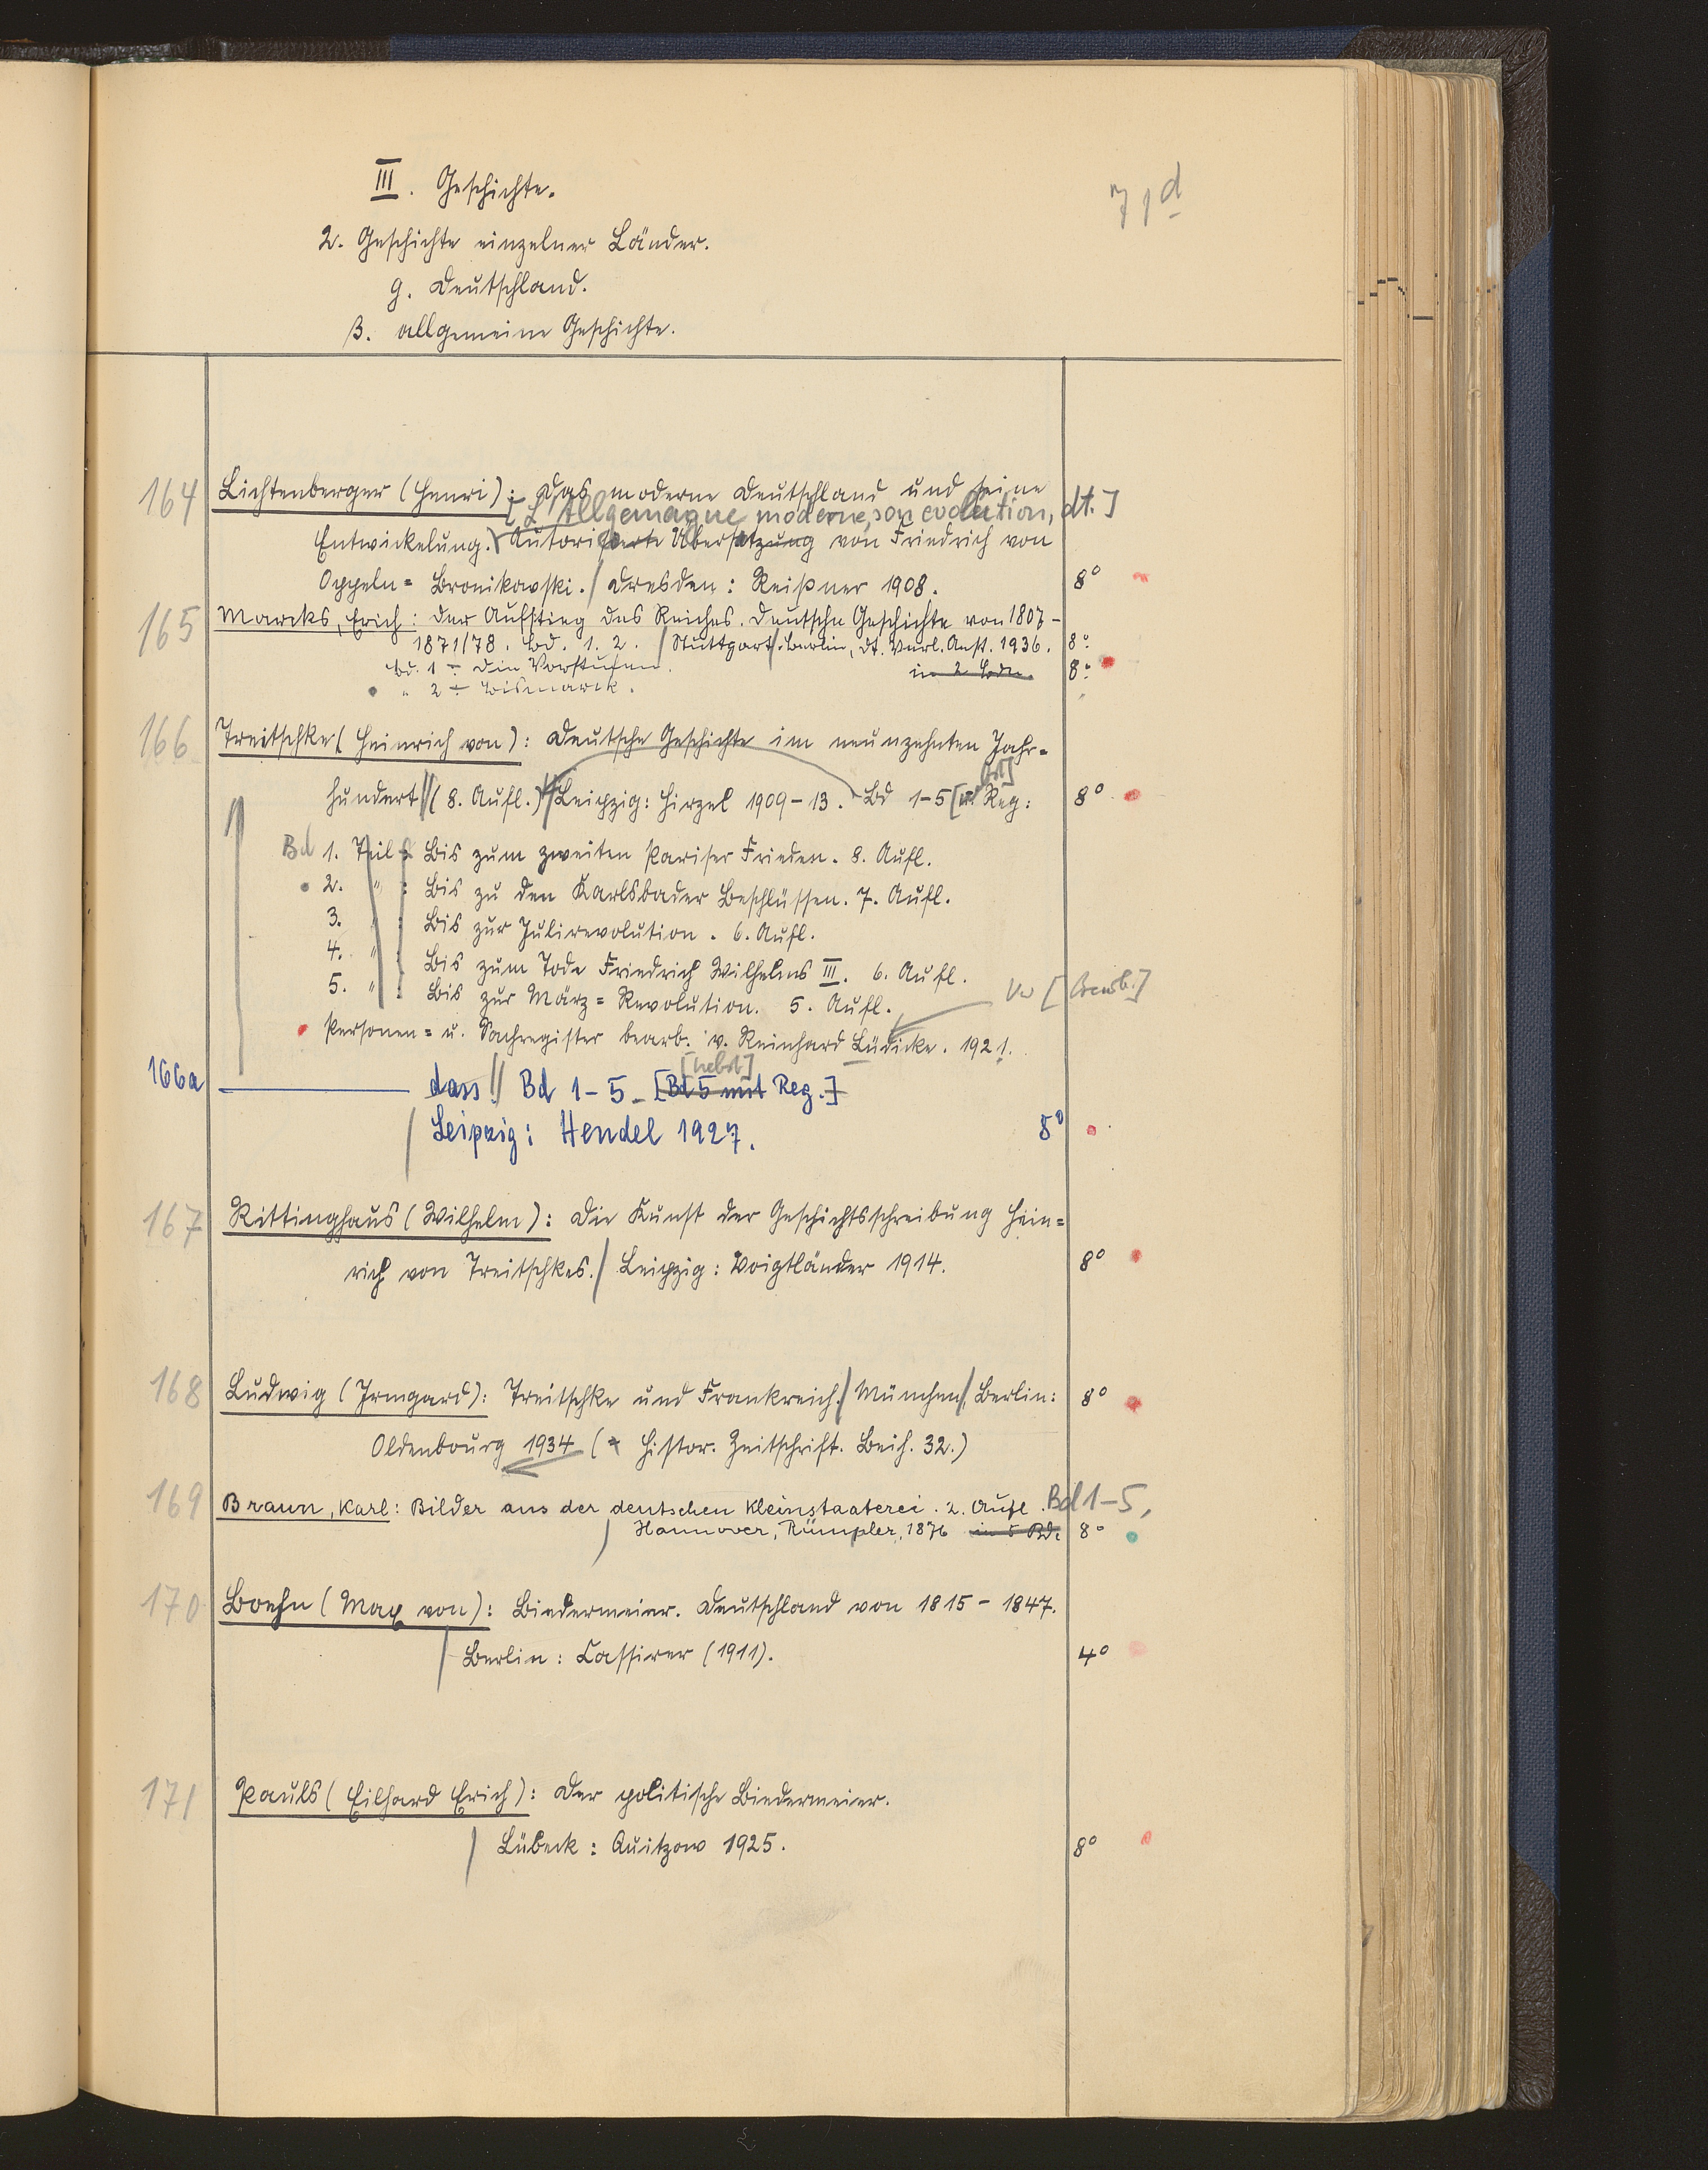 III. Geschichte.
71d
2. Geschichte einzelner Länder.
g. Deutschland.
β. allgemeine Geschichte.
164 Lichtenberger (Henri): Das moderne Deutschland und seine
[L'Allgemagne moderne, son evolution, dt.]
Entwickelung. Autorisierte Übersetzung von Friedrich von
Oppeln=Bronikowski. / Dresden: Reißner 1908. 8°
165 Marcks, Erich: Der Aufstieg des Reiches. Deutsche Geschichte von 1807-
1871/78. Bd. 1. 2. / Stuttgart/. Berlin, Dt. Verl. Anst. 1936. 8°
Bd. 1 : Die Vorstufen. in 2 Bdn. 8°
" 2 : Bismarck.
166 Treitschke (Heinrich von): Deutsche Geschichte im neunzehnten Jahr=
hundert // (8. Aufl.) // Leipzig: Hirzel 1909-13. Bd 1-5 [u. Reg: 8°
Bd 1. Teil : Bis zum zweiten Pariser Frieden. 8. Aufl.
2. " : Bis zu den Karlsbader Beschlüssen. 7. Aufl.
3. " : Bis zur Julirevolution. 6. Aufl.
4. " : Bis zum Tode Friedrich Wilhelms III. 6. Aufl.
5. " : Bis zur März=Revolution. 5. Aufl.
Personen= u. Sachregister bearb. v. Reinhard Lüdicke. 1921.
[nebst]
166a ——— dass // Bd 1-5. [Bd 5 mit Reg.]
/ Leipzig: Hendel 1927. 8°
167 Rittinghaus (Wilhelm): Die Kunst der Geschichtsschreibung Hein=
rich von Treitschkes. / Leipzig: Voigtländer 1914. 8°
168 Ludwig (Irmgard): Treitschke und Frankreich. / München/, Berlin: 8°
Oldenbourg 1934 (= Histor. Zeitschrift. Beih. 32.)
169 Braun, Karl: Bilder aus der deutschen Kleinstaaterei. 2. Aufl. Bd 1-5,
/ Hannover, Rümpler, 1876 in 5 Bd. 8°
170 Boehn (Max von): Biedermeier. Deutschland von 1815-1847.
/ Berlin: Cassirer (1911). 4°
171 Pauls (Eilhard Erich): Der politische Biedermeier.
/ Lübeck: Quitzow 1925. 8°